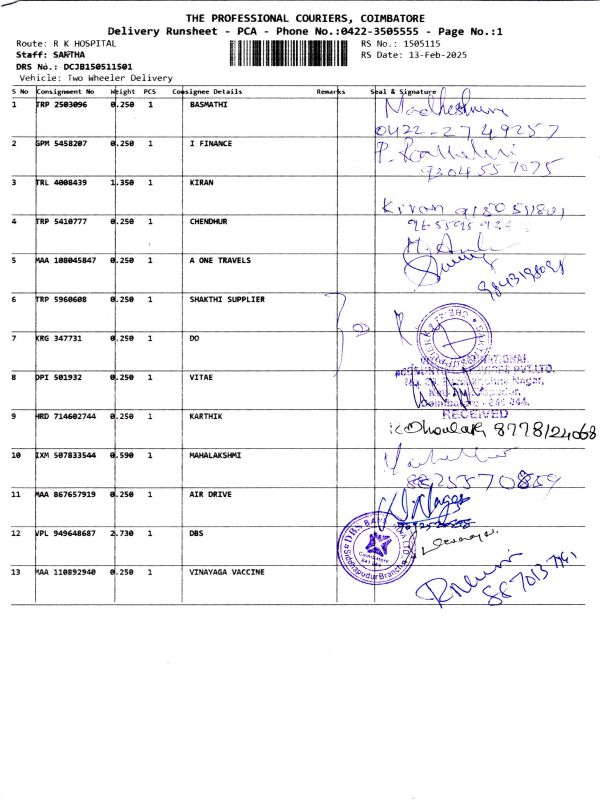 THE PROFESSIONAL COURIERS, COIMBATORE
Delivery Runsheet - PCA - Phone No.:0422-3505555 - Page No.:1
Route: R K HOSPITAL
RS No.: 1505115
Staff: SANTHA
RS Date: 13-Feb-2025
DRS No.: DCJB150511501
Vehicle: Two Wheeler Delivery
S No Consignment No Weight PCS Consignee Details Remarks Seal & Signature
1 TRP 2503096 0.250 1 BASMATHI
0422-2749257
2 GPM 5458207 0.250 1 I FINANCE
9304557075
3 TRL 4008439 1.350 1 KIRAN
Kiran
4 TRP 5410777 0.250 1 CHENDHUR
5 MAA 108045847 0.250 1 A ONE TRAVELS
6 TRP 5960608 0.250 1 SHAKTHI SUPPLIER
7 KRG 347731 0.250 1 DO
8 DPI 501932 0.250 1 VITAE
PVT.LTD.
Nagar,
RECEIVED
9 HRD 714602744 0.250 1 KARTHIK
8778124068
10 IXM 507833544 0.590 1 MAHALAKSHMI
8825570859
11 MAA 867657919 0.250 1 AIR DRIVE
12 VPL 949648687 2.730 1 DBS
DBS BANK
Siddhapudur Branch
13 MAA 110892940 0.250 1 VINAYAGA VACCINE